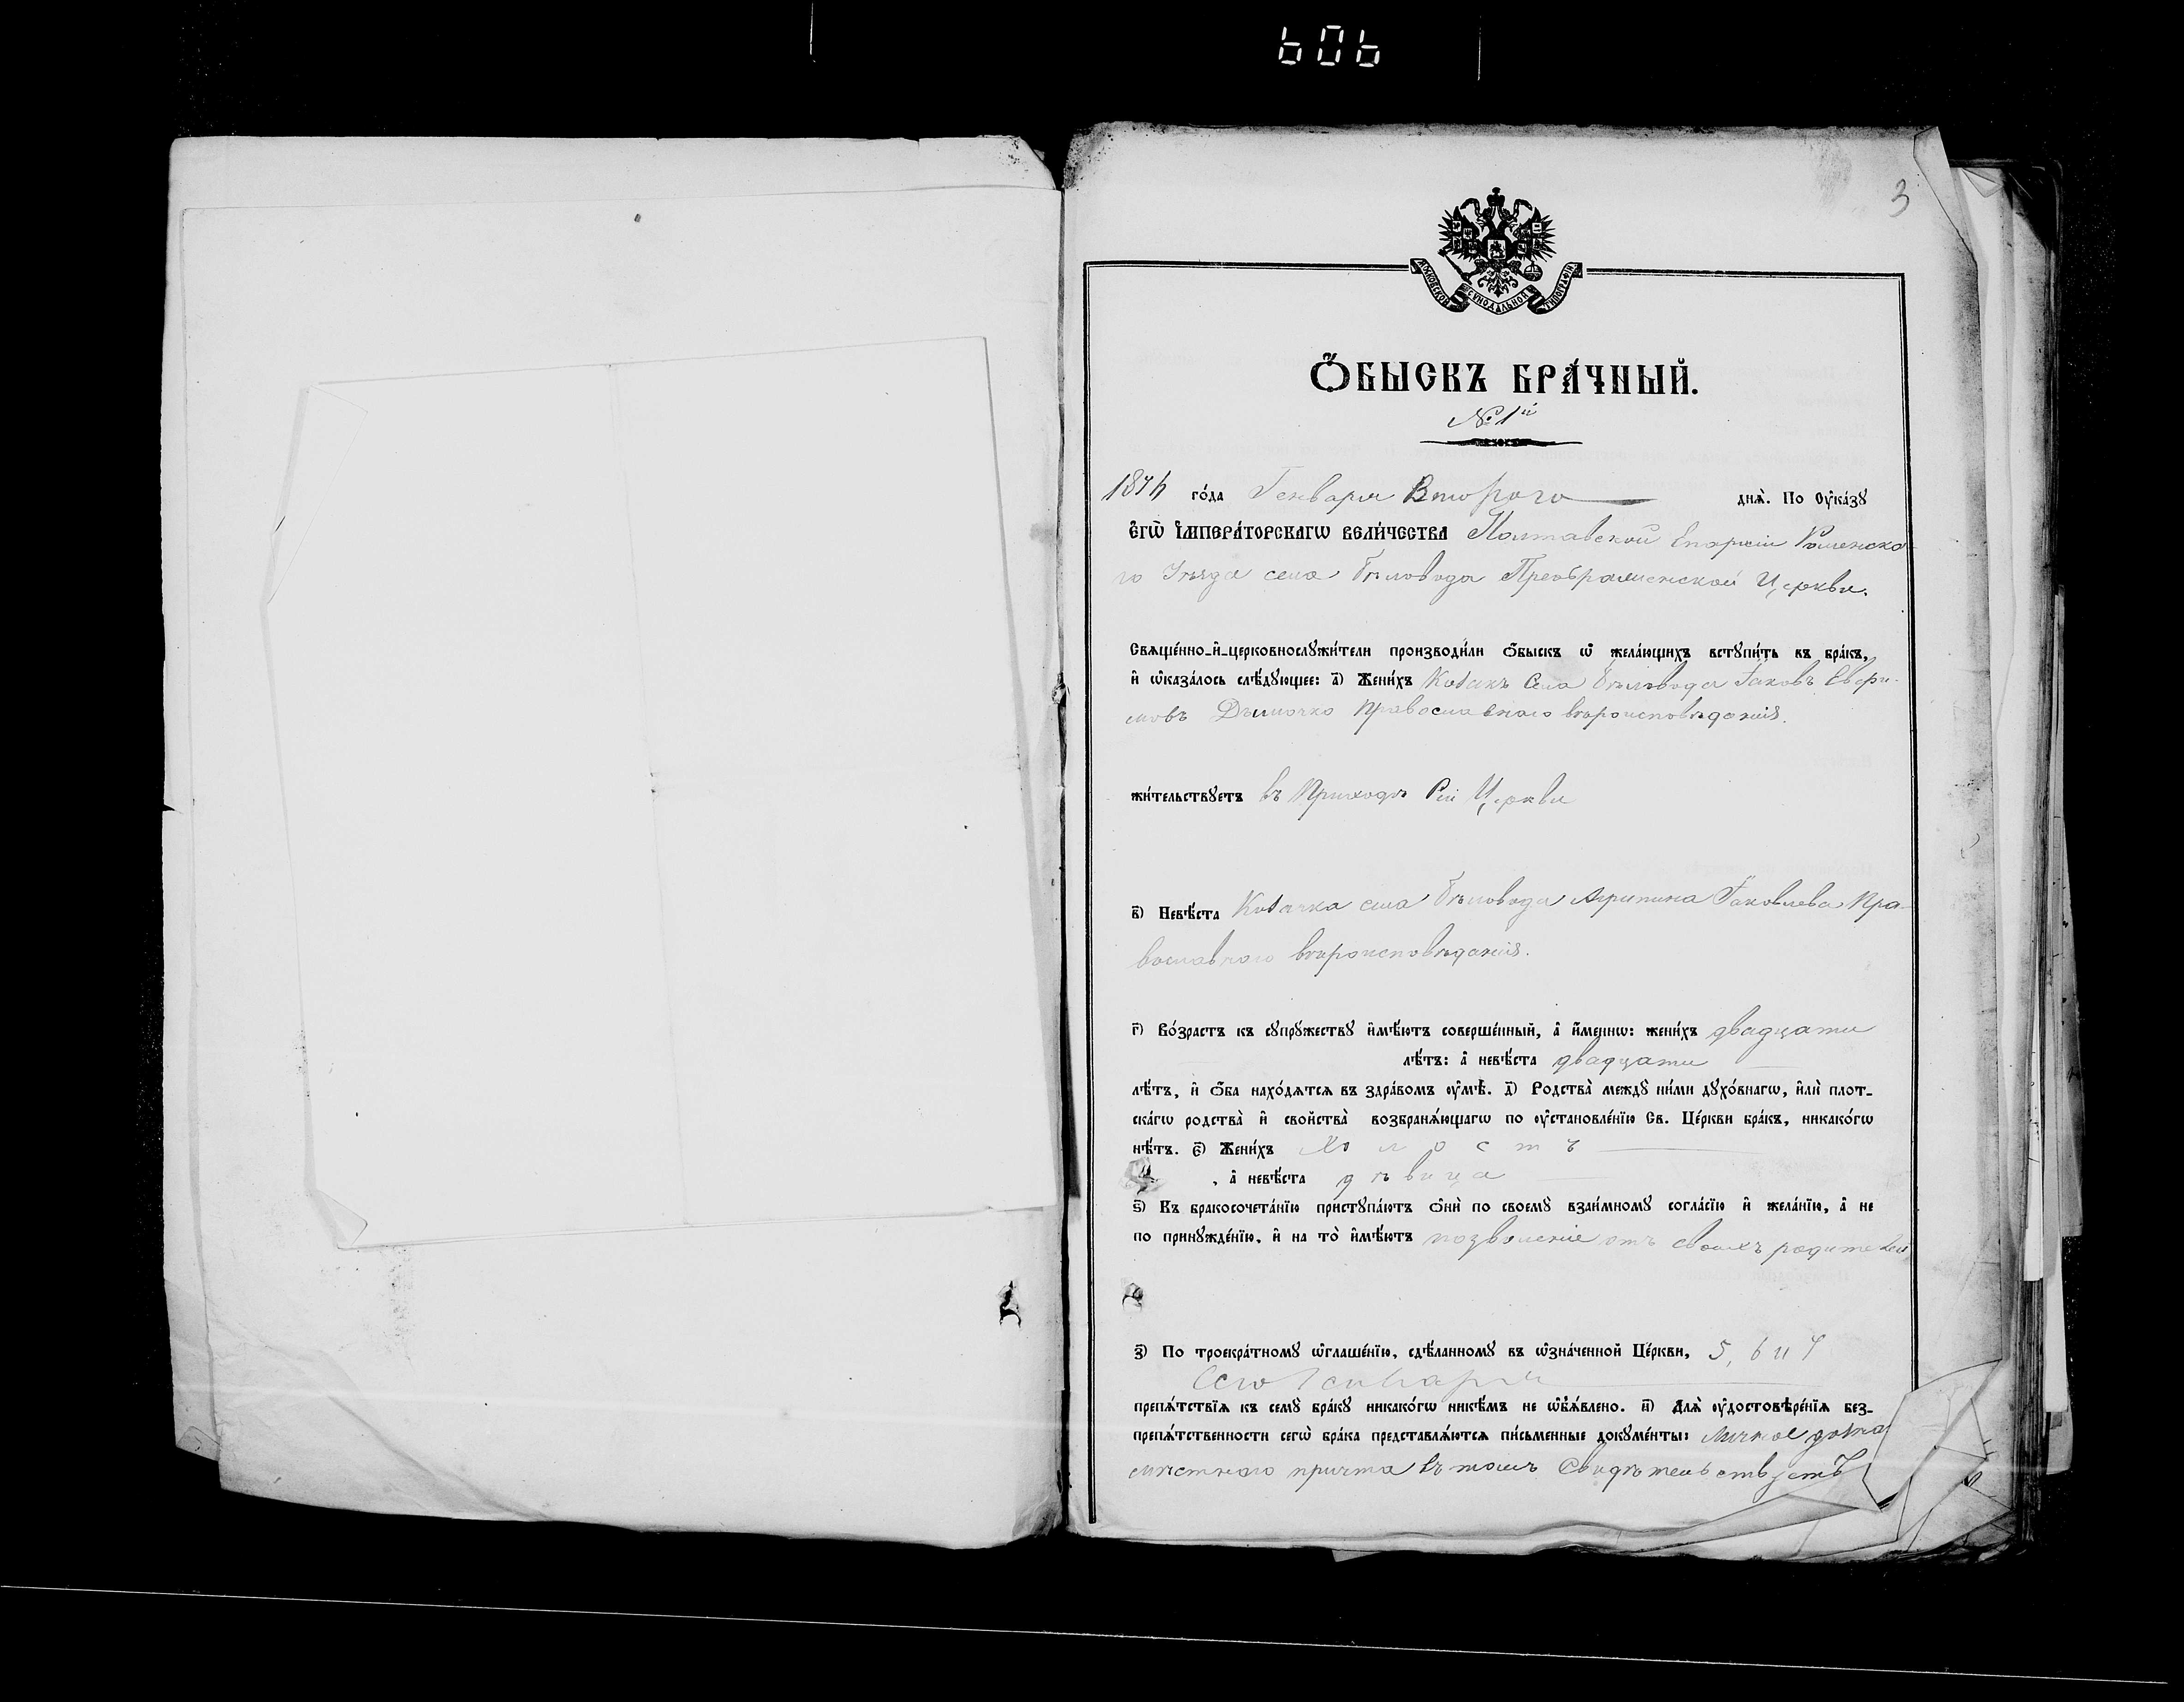 606
3
МОСКОВСКОЙ СѴНОДАЛЬНОЙ ТИПОГРАФІИ
Ѻ҆БЫСКЪ БРА́ЧНЫЙ.
№ 1й
года Генваря Второго днѧ̀. По Оу҆ка́зꙋ
Е҆гѡ̀ И҆мпера́торскагѡ Вели́чества Полтавской Епархіи Роменско-
го Уѣзда села Бѣловода Преображенской Церкви.
Свѧще́нно-и҆-церковнослꙋжи́тели производи́ли ѻ҆́быскъ ѡ҆ жела́ющихъ встꙋпи́ть въ бра́къ,
и҆ ѡ҆каза́лось слѣ́дꙋющее: а҃) Жени́хъ Козакъ Села Бѣловода Іаковъ Евфи-
мовъ Православнаго вѣроисповѣданія.
жи́тельствꙋетъ въ Приходѣ Сей Церкви
в҃) Невѣ́ста Козачка села Бѣловода Агрипина Іаковлева Пра-
вославнаго вѣроисповѣданія.
г҃) Во́зрастъ къ сꙋпрꙋ́жествꙋ и҆мѣ́ютъ соверше́нный, а҆ и҆́меннѡ: жени́хъ двадцати
лѣ́тъ: а҆ невѣ́ста двадцати
лѣ́тъ, и҆ ѻ҆́ба нахо́дѧтсѧ въ здра́вомъ оу҆мѣ̀. д҃) Родства̀ междꙋ̀ ни́ми дꙋхо́внагѡ, и҆лѝ плот-
ска́гѡ родства̀ и҆ свойства̀ возбранѧ́ющагѡ по оу҆становле́нїю Св. Це́ркви бра́къ, никако́гѡ
нѣ́тъ. є҃) Жени́хъ Холостъ
, а҆ невѣ́ста дѣвица
ѕ҃) Къ бракосочета́нїю пристꙋпа́ютъ ѻ҆нѝ по своемꙋ̀ взаи́мномꙋ согла́сїю и҆ жела́нїю, а҆ не
по принꙋжде́нїю, и҆ на то̀ и҆мѣ́ютъ позволеніе отъ своихъ родителей
з҃) По троекра́тномꙋ ѡ҆глаше́нїю, сдѣ́ланномꙋ въ ѡ҆зна́ченной Це́ркви, 5, 6 и
Сего Генваря
препѧ́тствїѧ къ семꙋ̀ бра́кꙋ никако́гѡ никѣ́мъ не ѡ҆б̾ѧ́влено. и҃) Длѧ̀ оу҆достовѣре́нїѧ без-
препѧ́тственности сегѡ̀ бра́ка представлѧ́ютсѧ пи́сьменные докꙋме́нты: личное
мѣстнаго причта въ томъ свидѣтельствуетъ